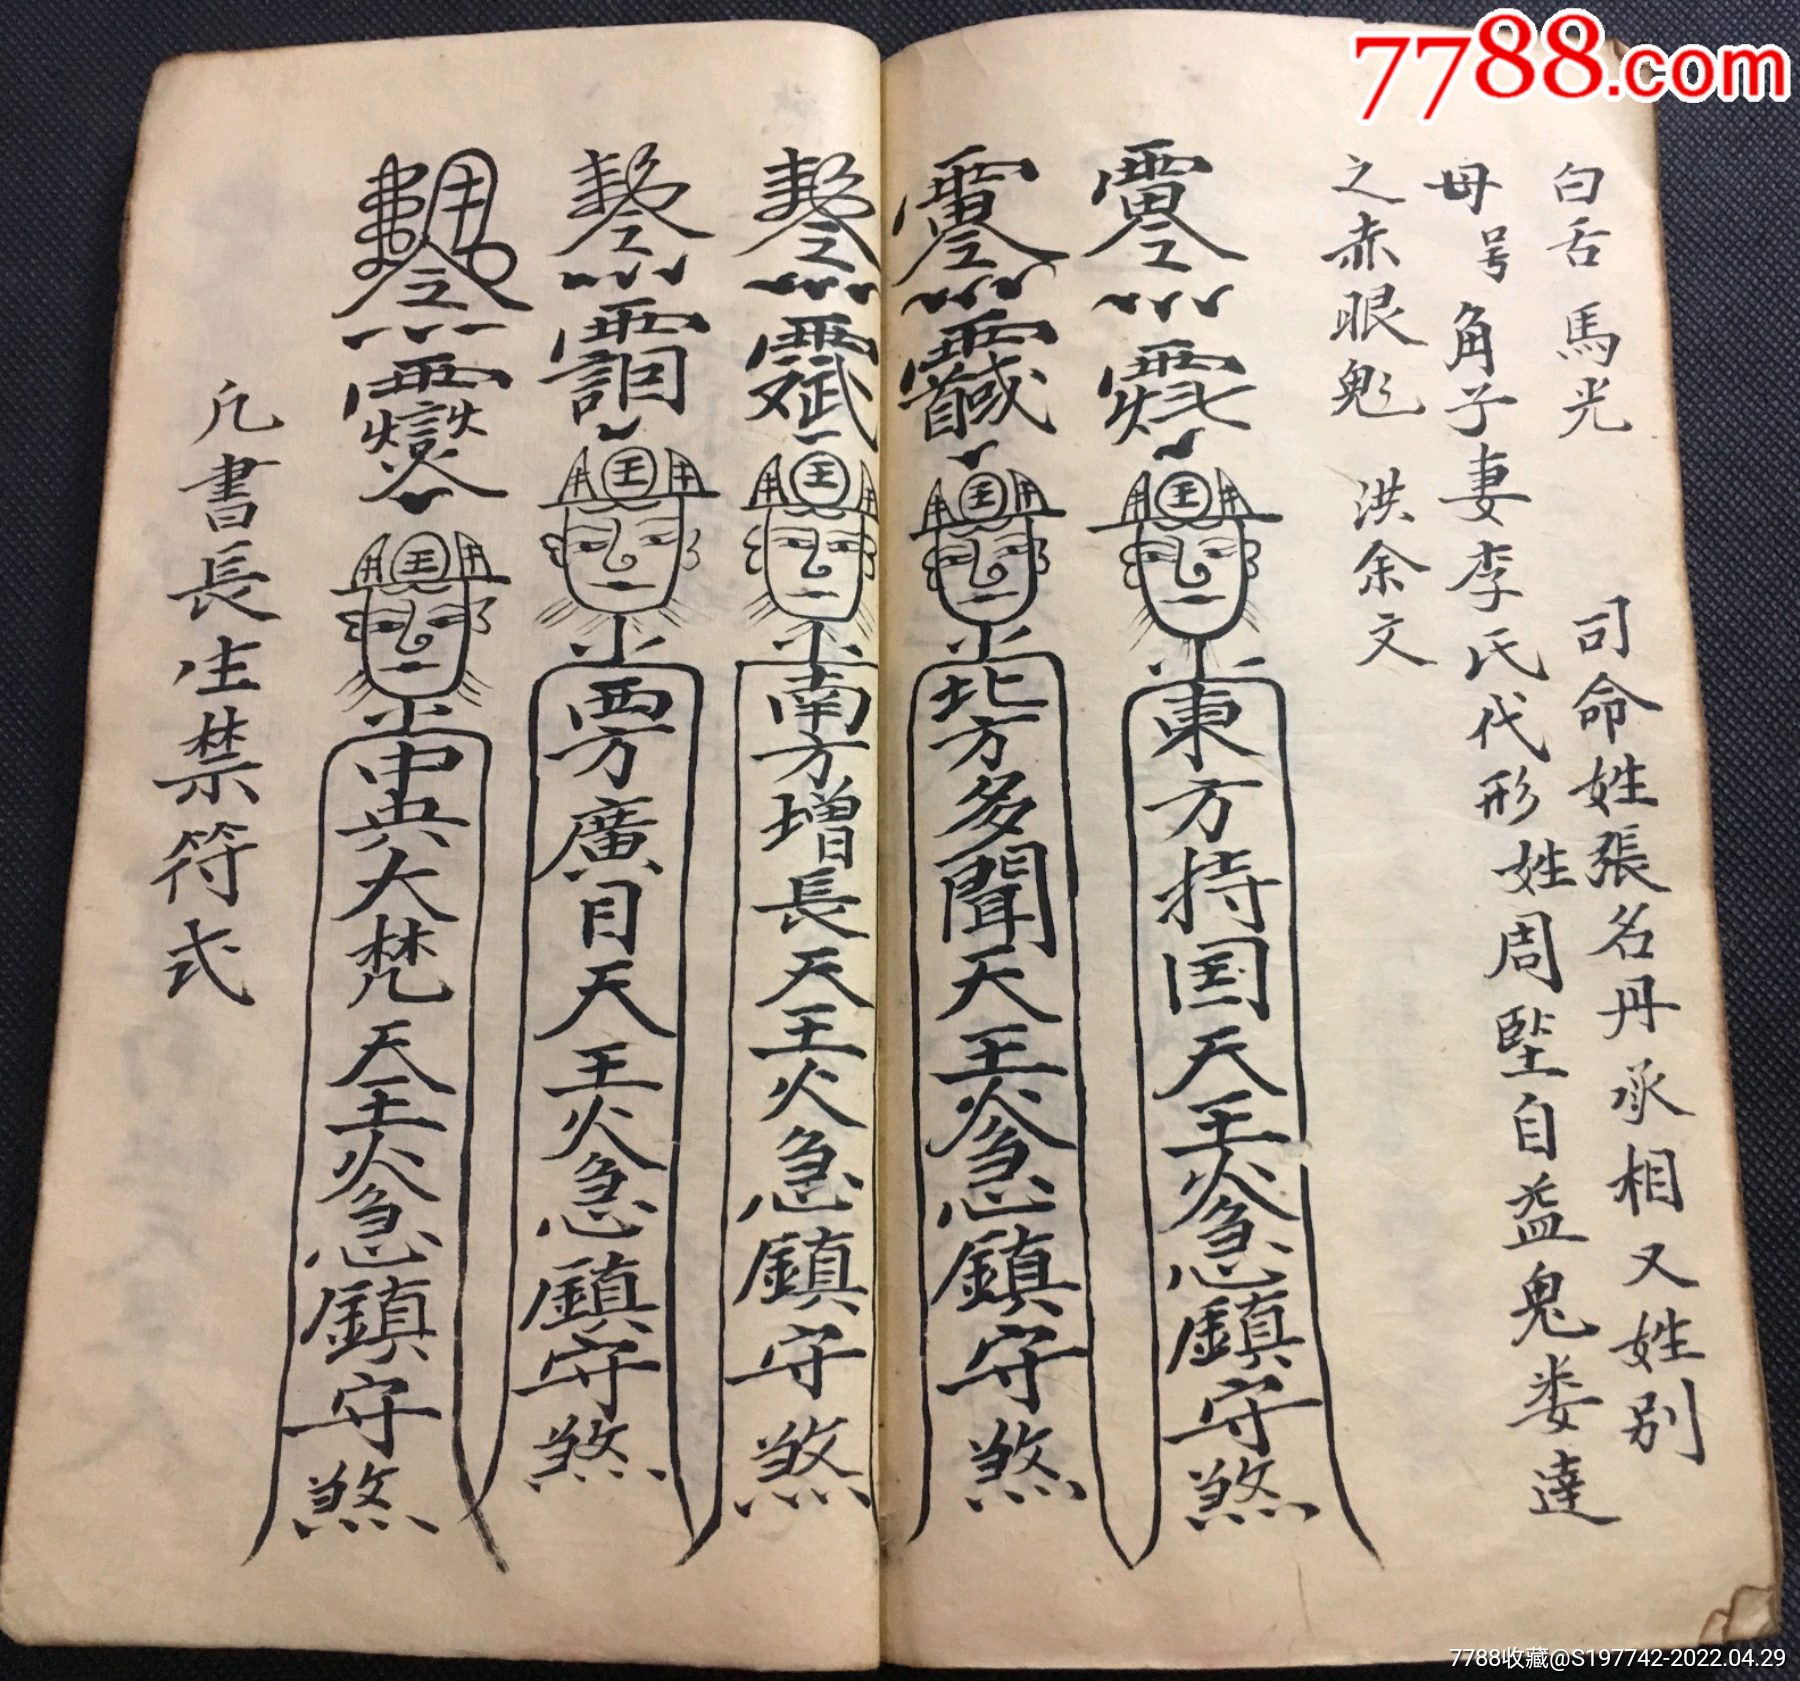 7788.com
白舌 馬光 司命姓張名丹承相又姓别
母号角子妻李氏代形姓周 自益鬼娄達
之赤眼鬼 洪余文
東方持国天王火急鎮守煞
北方多聞天王火急鎮守煞
南方增長天王火急鎮守煞
西方廣目天王火急鎮守煞
中央大梵天王火急鎮守煞
凡書長生禁符式
7788收藏@S197742-2022.04.29